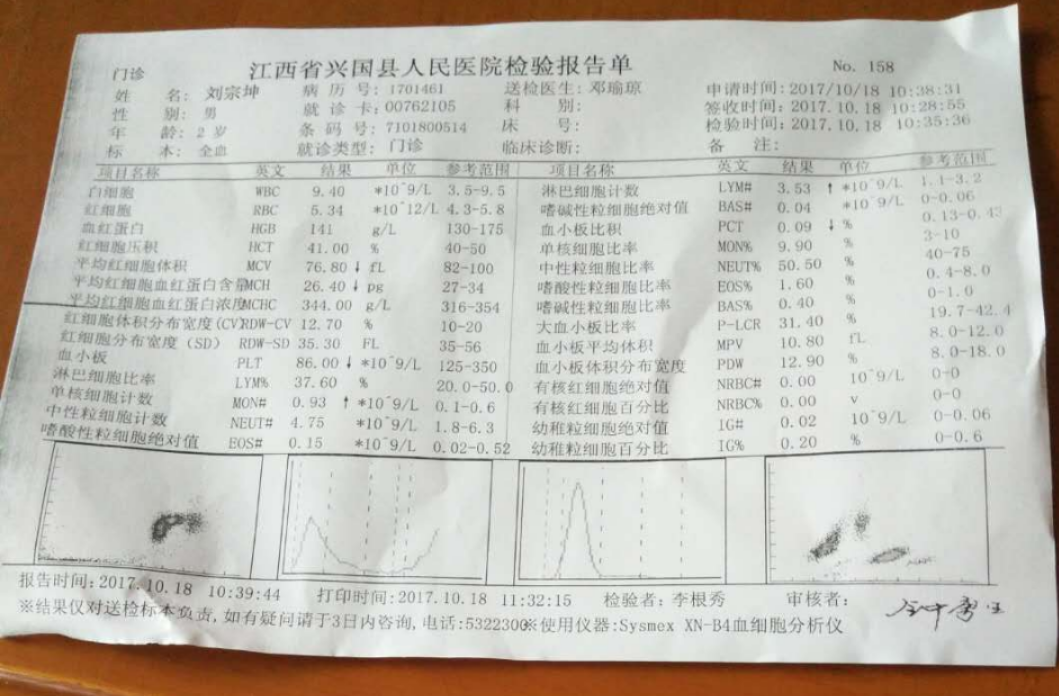 江西省兴国县人民医院检验报告单
门诊 No. 158
姓 名: 刘宗坤 病 历 号: 1701461 送检医生: 邓瑜琼 申请时间: 2017/10/18 10:38:31
性 别: 男 就 诊 卡: 00762105 科 别: 签收时间: 2017.10.18 10:28:55
年 龄: 2 岁 条 码 号: 7101800514 床 号: 检验时间: 2017.10.18 10:35:36
标 本: 全血 就诊类型: 门诊 临床诊断: 备 注:
项目名称 英文 结果 单位 参考范围 项目名称 英文 结果 单位 参考范围
白细胞 WBC 9.40 *10^9/L 3.5-9.5 淋巴细胞计数 LYM# 3.53 ↑ *10^9/L 1.1-3.2
红细胞 RBC 5.34 *10^12/L 4.3-5.8 嗜碱性粒细胞绝对值 BAS# 0.04 *10^9/L 0-0.06
血红蛋白 HGB 141 g/L 130-175 血小板比积 PCT 0.09 ↓ % 0.13-0.43
红细胞压积 HCT 41.00 % 40-50 单核细胞比率 MON% 9.90 % 3-10
平均红细胞体积 MCV 76.80 ↓ fL 82-100 中性粒细胞比率 NEUT% 50.50 % 40-75
平均红细胞血红蛋白含量 MCH 26.40 ↓ pg 27-34 嗜酸性粒细胞比率 EOS% 1.60 % 0.4-8.0
平均红细胞血红蛋白浓度 MCHC 344.00 g/L 316-354 嗜碱性粒细胞比率 BAS% 0.40 % 0-1.0
红细胞体积分布宽度(CV) RDW-CV 12.70 % 10-20 大血小板比率 P-LCR 31.40 % 19.7-42.4
红细胞分布宽度(SD) RDW-SD 35.30 FL 35-56 血小板平均体积 MPV 10.80 fL 8.0-12.0
血小板 PLT 86.00 ↓ *10^9/L 125-350 血小板体积分布宽度 PDW 12.90 % 8.0-18.0
淋巴细胞比率 LYM% 37.60 % 20.0-50.0 有核红细胞绝对值 NRBC# 0.00 10^9/L 0-0
单核细胞计数 MON# 0.93 ↑ *10^9/L 0.1-0.6 有核红细胞百分比 NRBC% 0.00 v 0-0
中性粒细胞计数 NEUT# 4.75 *10^9/L 1.8-6.3 幼稚粒细胞绝对值 IG# 0.02 10^9/L 0-0.06
嗜酸性粒细胞绝对值 EOS# 0.15 *10^9/L 0.02-0.52 幼稚粒细胞百分比 IG% 0.20 % 0-0.6
报告时间: 2017.10.18 10:39:44 打印时间: 2017.10.18 11:32:15 检验者: 李根秀 审核者:
※结果仅对送检标本负责, 如有疑问请于3日内咨询, 电话: 5322300 ※使用仪器: Sysmex XN-B4血细胞分析仪